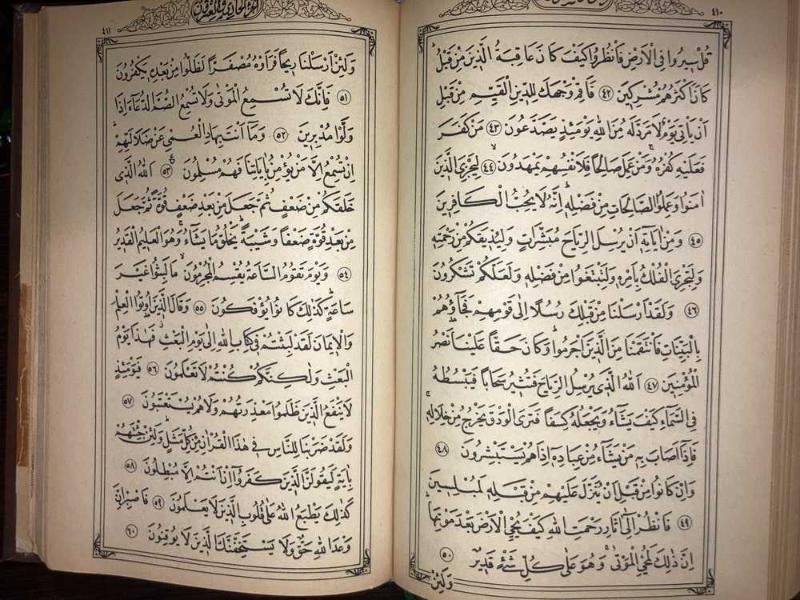 ٤١٠
قُلْ سِيرُوا فِي الْاَرْضِ فَانْظُرُوا كَيْفَ كَانَ عَاقِبَةُ الَّذِينَ مِنْ قَبْلُ
كَانَ اَكْثَرُهُمْ مُشْرِكِينَ ﴿٤٢﴾ فَاَقِمْ وَجْهَكَ لِلدِّينِ الْقَيِّمِ مِنْ قَبْلِ
اَنْ يَاْتِيَ يَوْمٌ لَا مَرَدَّ لَهُ مِنَ اللّٰهِ يَوْمَئِذٍ يَصَّدَّعُونَ ﴿٤٣﴾ مَنْ كَفَرَ
فَعَلَيْهِ كُفْرُهُ وَمَنْ عَمِلَ صَالِحًا فَلِاَنْفُسِهِمْ يَمْهَدُونَ ﴿٤٤﴾ لِيَجْزِيَ الَّذِينَ
اٰمَنُوا وَعَمِلُوا الصَّالِحَاتِ مِنْ فَضْلِهِ اِنَّهُ لَا يُحِبُّ الْكَافِرِينَ
﴿٤٥﴾ وَمِنْ اٰيَاتِهِ اَنْ يُرْسِلَ الرِّيَاحَ مُبَشِّرَاتٍ وَلِيُذِيقَكُمْ مِنْ رَحْمَتِهِ
وَلِتَجْرِيَ الْفُلْكُ بِاَمْرِهِ وَلِتَبْتَغُوا مِنْ فَضْلِهِ وَلَعَلَّكُمْ تَشْكُرُونَ
﴿٤٦﴾ وَلَقَدْ اَرْسَلْنَا مِنْ قَبْلِكَ رُسُلًا اِلٰى قَوْمِهِمْ فَجَاؤُهُمْ
بِالْبَيِّنَاتِ فَانْتَقَمْنَا مِنَ الَّذِينَ اَجْرَمُوا وَكَانَ حَقًّا عَلَيْنَا نَصْرُ
الْمُؤْمِنِينَ ﴿٤٧﴾ اَللّٰهُ الَّذِي يُرْسِلُ الرِّيَاحَ فَتُثِيرُ سَحَابًا فَيَبْسُطُهُ
فِي السَّمَاءِ كَيْفَ يَشَاءُ وَيَجْعَلُهُ كِسَفًا فَتَرَى الْوَدْقَ يَخْرُجُ مِنْ خِلَالِهِ
فَاِذَا اَصَابَ بِهِ مَنْ يَشَاءُ مِنْ عِبَادِهِ اِذَا هُمْ يَسْتَبْشِرُونَ ﴿٤٨﴾
وَاِنْ كَانُوا مِنْ قَبْلِ اَنْ يُنَزَّلَ عَلَيْهِمْ مِنْ قَبْلِهِ لَمُبْلِسِينَ
﴿٤٩﴾ فَانْظُرْ اِلٰى اٰثَارِ رَحْمَتِ اللّٰهِ كَيْفَ يُحْيِي الْاَرْضَ بَعْدَ مَوْتِهَا
اِنَّ ذٰلِكَ لَمُحْيِي الْمَوْتٰى وَهُوَ عَلٰى كُلِّ شَيْءٍ قَدِيرٌ ﴿٥٠﴾
وَلَئِنْ
٤١١
وَلَئِنْ اَرْسَلْنَا رِيحًا فَرَاَوْهُ مُصْفَرًّا لَظَلُّوا مِنْ بَعْدِهِ يَكْفُرُونَ
﴿٥١﴾ فَاِنَّكَ لَا تُسْمِعُ الْمَوْتٰى وَلَا تُسْمِعُ الصُّمَّ الدُّعَاءَ اِذَا
وَلَّوْا مُدْبِرِينَ ﴿٥٢﴾ وَمَا اَنْتَ بِهَادِ الْعُمْيِ عَنْ ضَلَالَتِهِمْ
اِنْ تُسْمِعُ اِلَّا مَنْ يُؤْمِنُ بِاٰيَاتِنَا فَهُمْ مُسْلِمُونَ ﴿٥٣﴾ اَللّٰهُ الَّذِي
خَلَقَكُمْ مِنْ ضَعْفٍ ثُمَّ جَعَلَ مِنْ بَعْدِ ضَعْفٍ قُوَّةً ثُمَّ جَعَلَ
مِنْ بَعْدِ قُوَّةٍ ضَعْفًا وَشَيْبَةً يَخْلُقُ مَا يَشَاءُ وَهُوَ الْعَلِيمُ الْقَدِيرُ
﴿٥٤﴾ وَيَوْمَ تَقُومُ السَّاعَةُ يُقْسِمُ الْمُجْرِمُونَ مَا لَبِثُوا غَيْرَ
سَاعَةٍ كَذٰلِكَ كَانُوا يُؤْفَكُونَ ﴿٥٥﴾ وَقَالَ الَّذِينَ اُوتُوا الْعِلْمَ
وَالْاِيمَانَ لَقَدْ لَبِثْتُمْ فِي كِتَابِ اللّٰهِ اِلٰى يَوْمِ الْبَعْثِ فَهٰذَا يَوْمُ
الْبَعْثِ وَلٰكِنَّكُمْ كُنْتُمْ لَا تَعْلَمُونَ ﴿٥٦﴾ فَيَوْمَئِذٍ
لَا يَنْفَعُ الَّذِينَ ظَلَمُوا مَعْذِرَتُهُمْ وَلَا هُمْ يُسْتَعْتَبُونَ ﴿٥٧﴾
وَلَقَدْ ضَرَبْنَا لِلنَّاسِ فِي هٰذَا الْقُرْاٰنِ مِنْ كُلِّ مَثَلٍ وَلَئِنْ جِئْتَهُمْ
بِاٰيَةٍ لَيَقُولَنَّ الَّذِينَ كَفَرُوا اِنْ اَنْتُمْ اِلَّا مُبْطِلُونَ ﴿٥٨﴾
كَذٰلِكَ يَطْبَعُ اللّٰهُ عَلٰى قُلُوبِ الَّذِينَ لَا يَعْلَمُونَ ﴿٥٩﴾ فَاصْبِرْ اِنَّ
وَعْدَ اللّٰهِ حَقٌّ وَلَا يَسْتَخِفَّنَّكَ الَّذِينَ لَا يُوقِنُونَ ﴿٦٠﴾